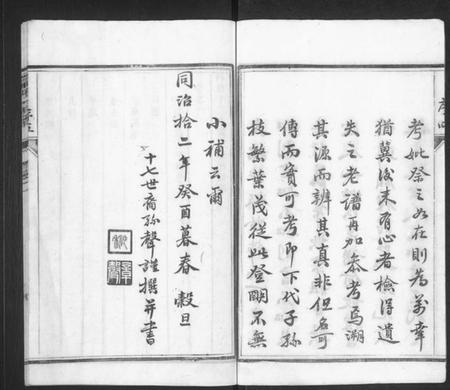 考妣祭之如在則為萬幸
猶冀後來有心者檢得遺
失之老譜再加叅考焉溯
其源而辨其真非但名可
傳而實可考即下代子孫
枝繁葉茂從此登明不無
小補云爾
同治拾二年癸酉暮春穀旦
十七世裔孫聲謹撰並書